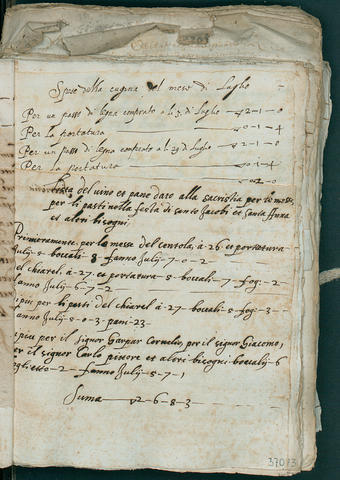 Spese della cugina del mese di Luglio
Per un passo di legna comprato a li 5 di Luglio — ▽2-1-0
Per la portatura — ▽0-1-4
Per un passo di legna comprato a li 29 di Luglio — ▽2-1-0
Per la portatura — ▽0-1-4
del vino et pane dato alla sacristia per le messe
per li pasti nella festa di santo Jacobi et santa Anna
et altri bisogni
Primieramente per la messa del consola, à 26 et portatura
July-5-boccali-8-fanno July-7-0-2
el chiarel à-27-et portatura-5-boccali-7-fog:-2-
fanno July-6-7-2-
piu per li pasti del chiarel à-27-boccali-5-fog:-3-
fanno July-5-0-3-pani-23-
piu per il signor Gaspar Cornelio, per il signor Giacomo,
per il signor Carlo pittore et altri bisogni boccali-6
foglietto-2-fanno July-5-7-1
Suma — ▽2-6-8-3
37073